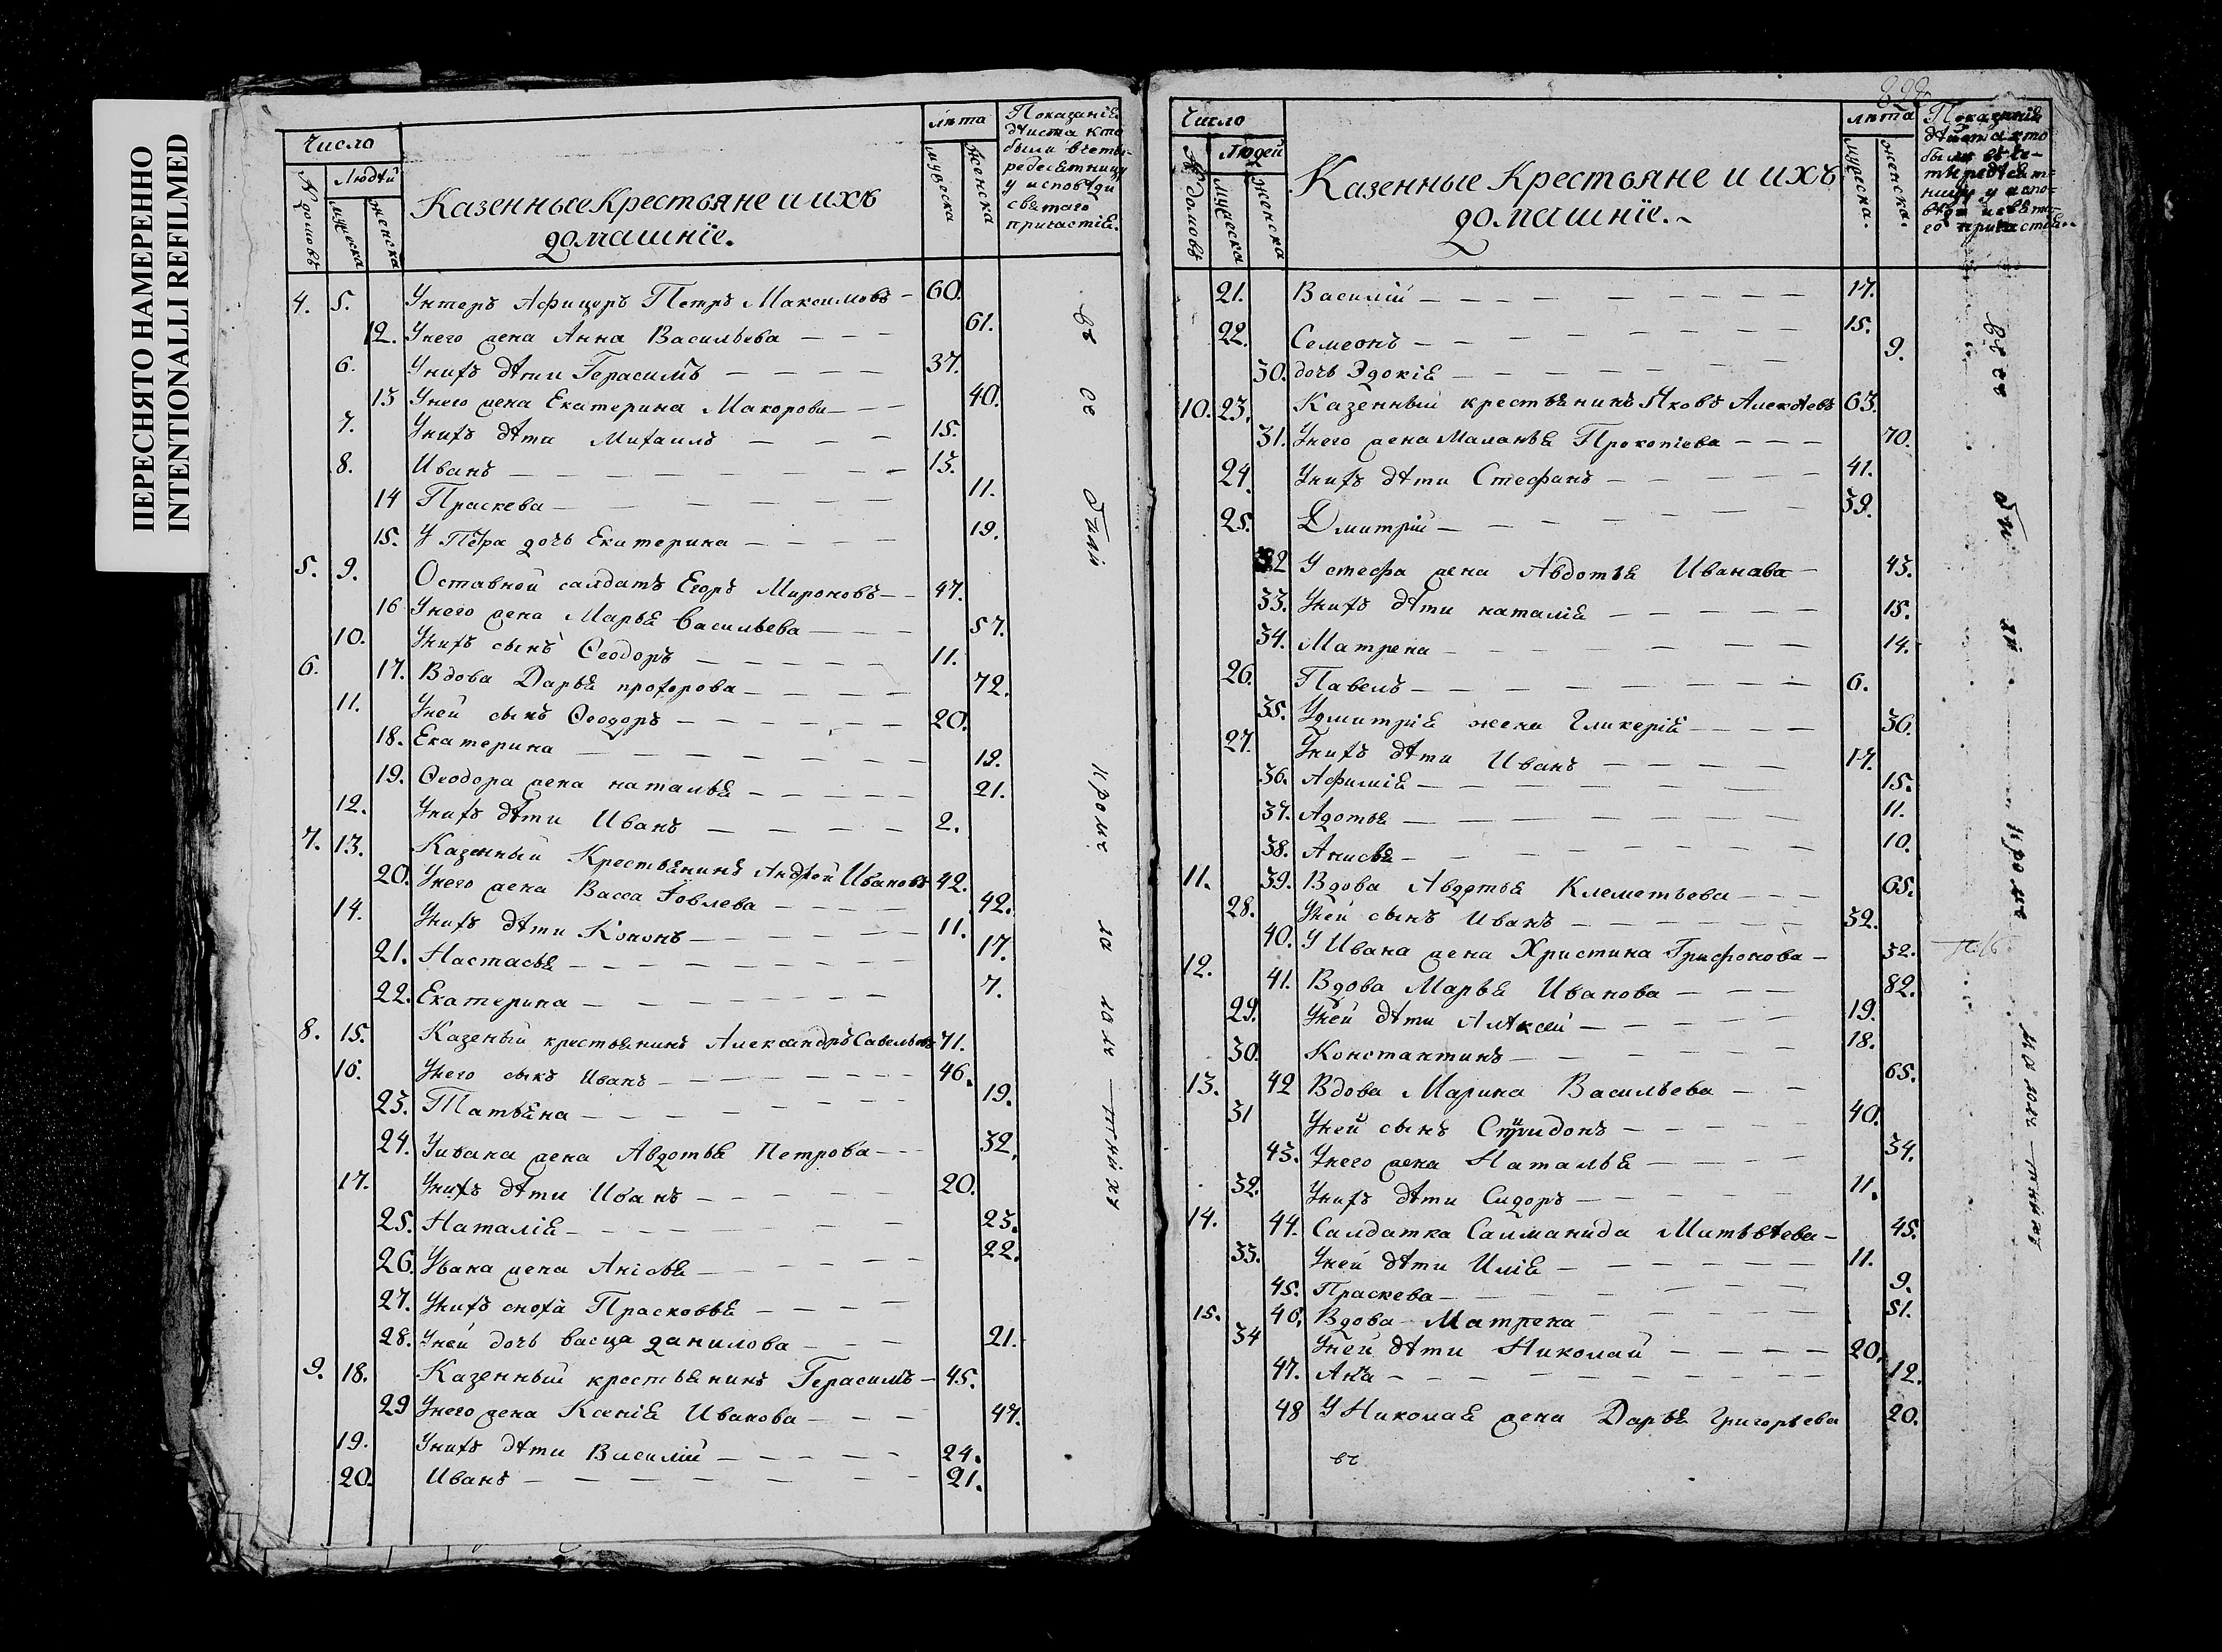 ПЕРЕСНЯТО НАМЕРЕННО
INTENTIONALLI REFILMED
Число
Людей
№ домовъ
мужеска
женска
Казенные Крестьяне и ихъ
домашніе.
лѣта
мужеска
женска
Показаніе
дѣиства кто
были вчеты-
редесятницу
у исповѣди
святаго
причастія.
4. 5. Унтеръ Афицеръ Петръ Максимовъ - 60.
12. Унего жена Анна Васильева - 61.
6. Унихъ дѣти Герасимъ - 37.
13 Унего жена Екатерина Макорова - 40.
7. Унихъ дѣти Михаилъ - 15.
8. Иванъ - 13.
14 Праскева - 11.
15. У Петра дочь Екатерина - 19.
5. 9. Оставной салдатъ Егоръ Мироновъ - 47.
16 Унего жена Марья Васильева - 57.
10. Унихъ сынъ Ѳеодоръ - 11.
6. 17. Вдова Дарья прохорова - 72.
11. Уней сынъ Ѳеодоръ - 20.
18. Екатерина - 19.
19. Ѳеодора жена наталья - 21.
12. Унихъ дѣти Иванъ - 2.
7. 13. Казенный Крестьянинъ Андрей Ивановъ 42.
20. Унего жена Васса Іовлева - 42.
14. Унихъ дѣти Кононъ - 11.
21. Настасья - 17.
22. Екатерина - 7.
8. 15. Казеный крестьянинъ Александръ Савельевъ 71.
16. Унего сынъ Иванъ - 46.
23. Татьяна - 19.
24. Уивана жена Авдотья Петрова - 32.
17. Унихъ дѣти Иванъ - 20.
25. Наталія - 23.
26. Увана жена Анісья - 22.
27. Унихъ сноха Прасковья -
28. Уней дочь васца данилова - 21.
9. 18. Казенный крестьянинъ Герасимъ - 45.
29 Унего жена Ксенія Иванова - 47.
19. Унихъ дѣти Василій - 24.
20. Иванъ - 21.
всѣ были кромѣ
Число
Людей
№ домовъ
мужеска
женска
Казенные Крестьяне и ихъ
домашніе.
лѣта
мужеска.
женска.
Показаніе
21. Василій - 17.
22. Семеонъ - 15.
30. дочь Эдокія - 9.
10. 23. Казенный крестьянинъ Яковъ Алексѣевъ 63.
31. Унего жена Маланья Прокопіева - 70.
24. Унихъ дѣти Стефанъ - 41.
25. Дмитрій - 39.
32 У стефа жена Авдотья Иванава - 43.
33. Унихъ дѣти наталія - 15.
34. Матрена - 14.
26. Павелъ - 6.
35. Удмитрія жена Гликерія - 36.
27. Унихъ дѣти Иванъ - 17.
36. Афимія - 15.
37. Адотья - 11.
38. Анисья - 10.
11. 39. Вдова Авдотья Клеметьева - 65.
28. Уней сынъ Иванъ - 32.
40. У Ивана жена Христина Трифонова - 32.
12. 41. Вдова Марья Иванова - 82.
29. Уней дѣти Алѣксей - 19.
30. Константинъ - 18.
13. 42 Вдова Марина Васильева - 65.
31 Уней сынъ Спиридонъ - 40.
43. Унего жена Наталья - 34.
32. Унихъ дѣти Сидоръ - 11.
14. 44. Салдатка Салманида Митвѣева - 45.
33. Уней дѣти Илія - 11.
45. Праскева - 9.
15. 46. Вдова Матрена - 51.
34 Уней дѣти Николай - 20.
47. Анна - 12.
48 У Николая жена Дарья Григорьева 20.